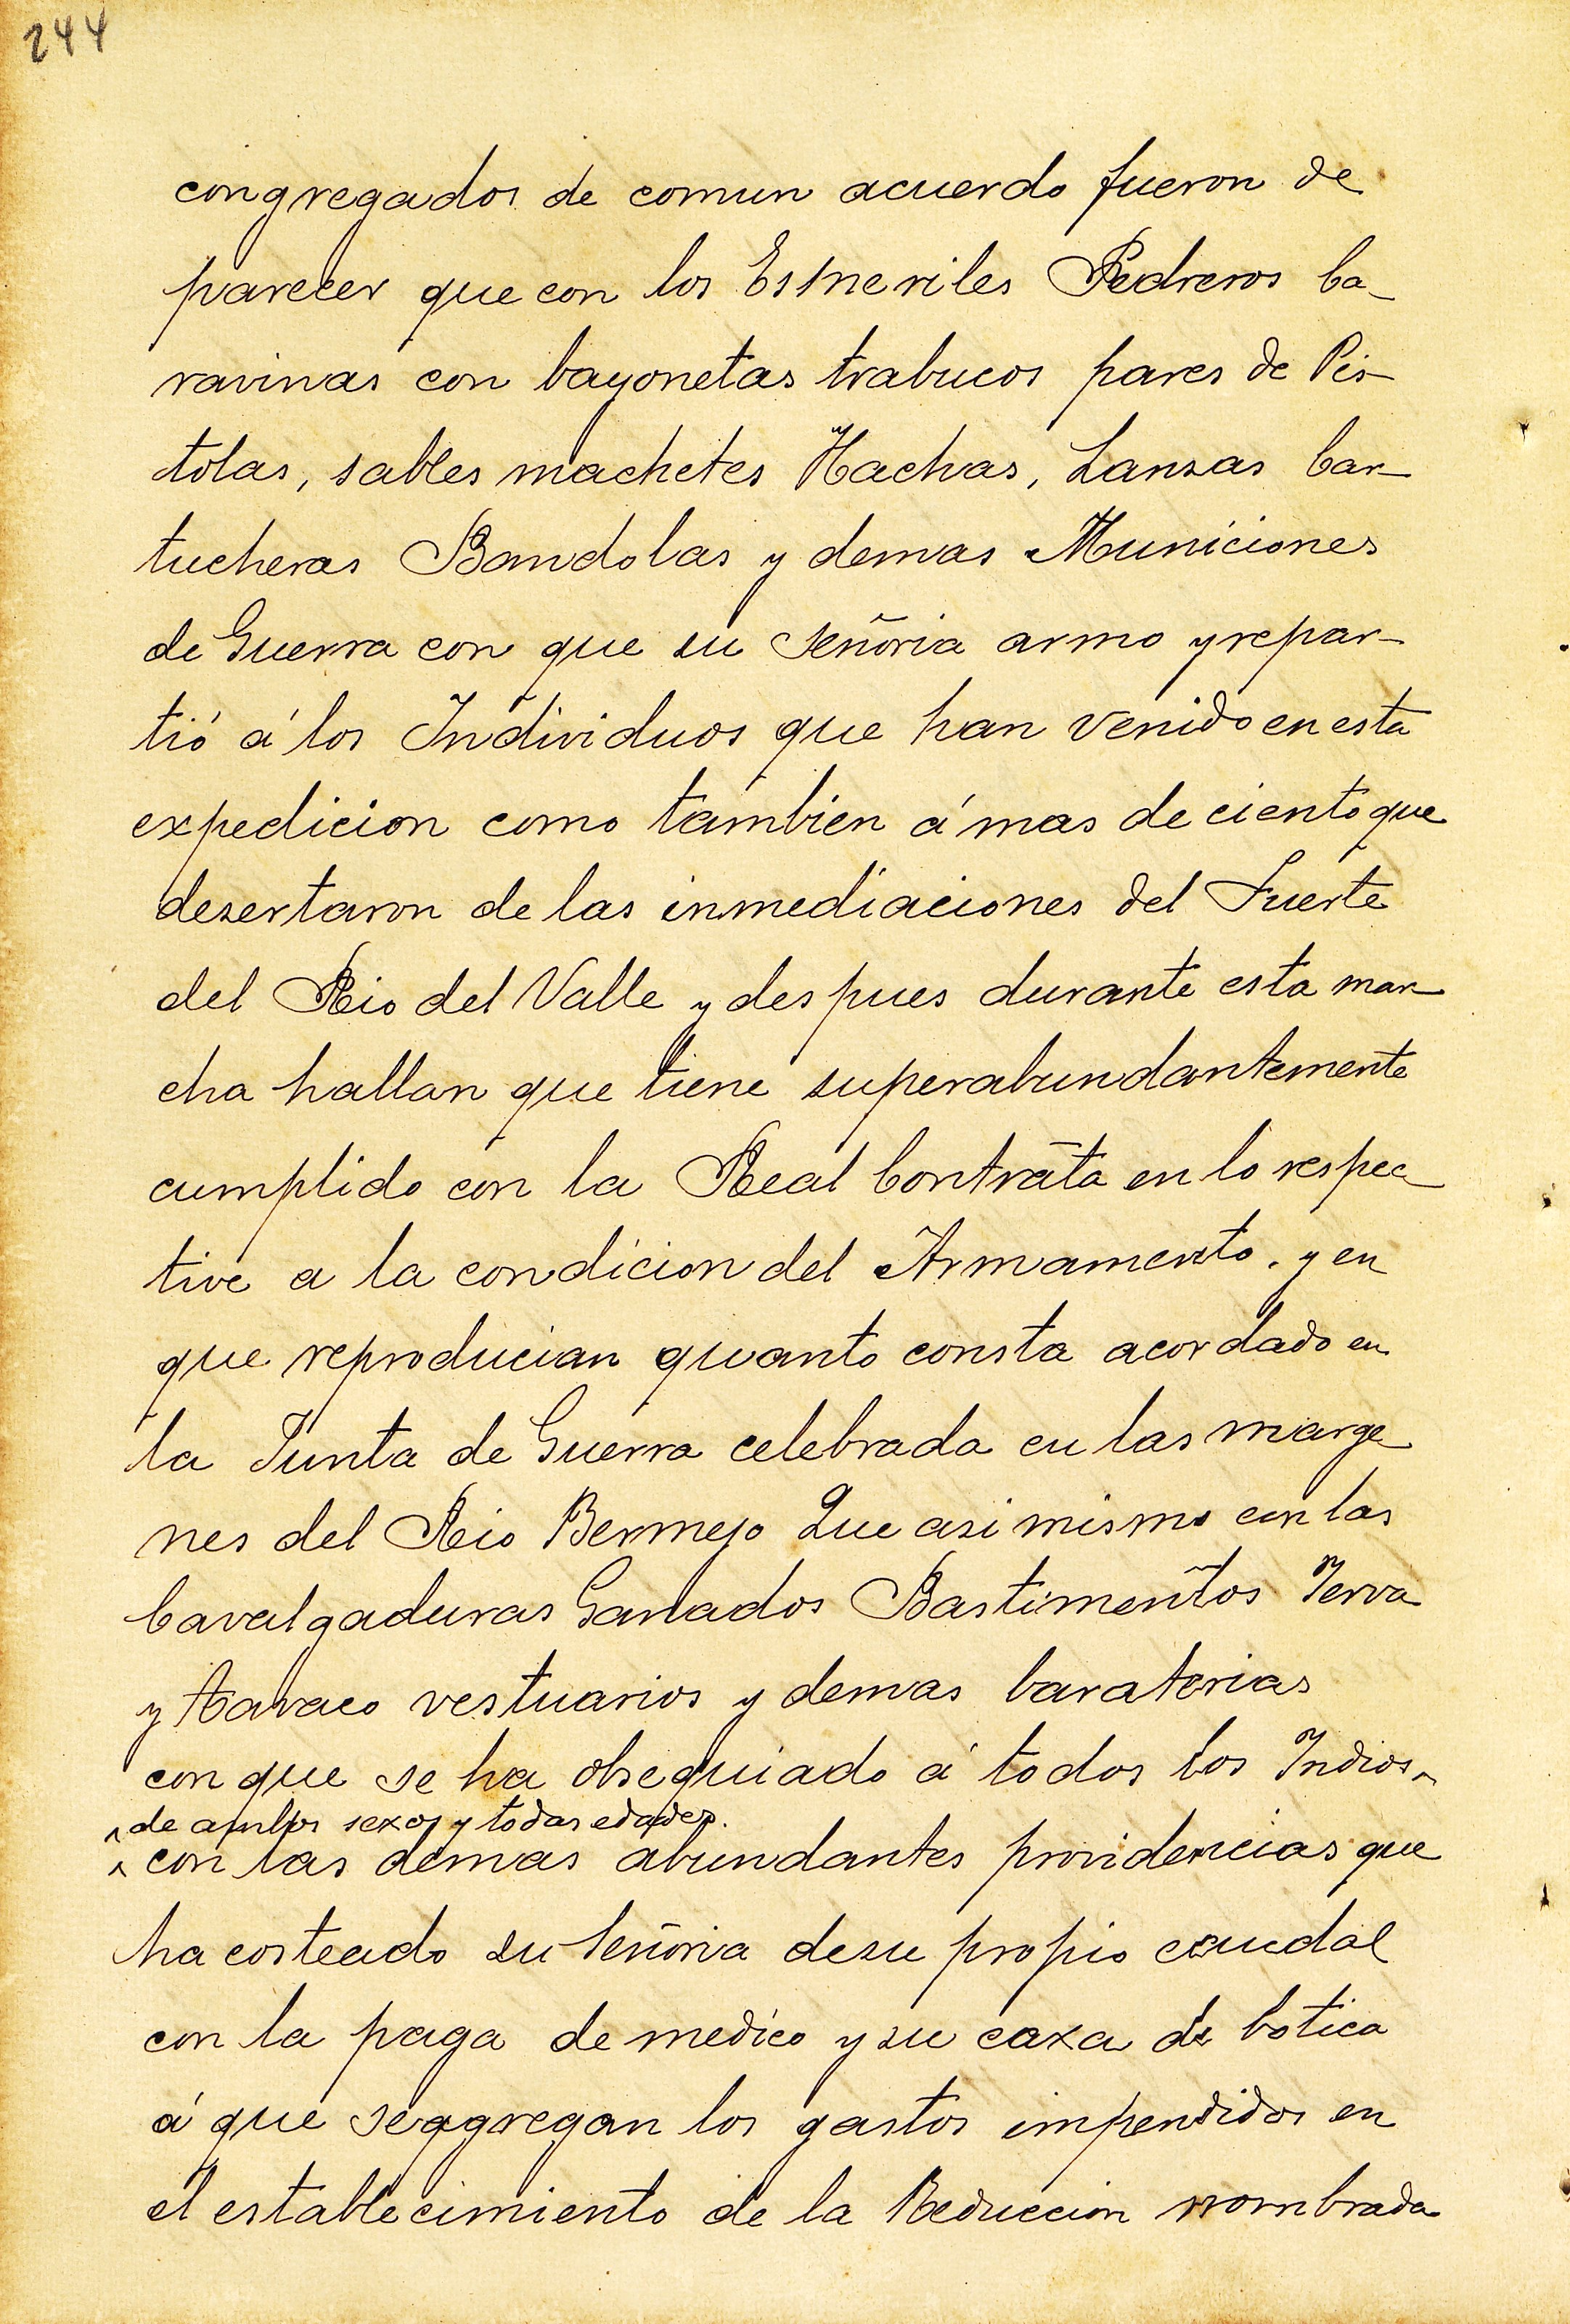 244
congregados de comun acuerdo fueron de
parecer que con los Esmeriles Pedreros Ca-
ravinas con bayonetas trabucos pares de Pis-
tolas, sables machetes Hachas, Lanzas Car-
tucheras Bandolas y demas Municiones
de Guerra con que su Señoria armo y repar-
tió á los Individuos que han venido en esta
expedicion como tambien á mas de ciento que
desertaron de las inmediaciones del Fuerte
del Rio del Valle y despues durante esta mar-
cha hallan que tiene superabundantemente
cumplido con la Real Contrata en lo respec-
tive a la condicion del Armamento. y en
que reproducian quanto consta acordado en
la Junta de Guerra celebrada en las marge-
nes del Rio Bermejo Que asi mismo con las
Cavalgaduras Ganados Bastimentos Yerva
y tavaco vestuarios y demas baraterias
con que se ha obsequiado á todos los Indios
de ambos sexos y todas edades.
con las demas abundantes providencias que
ha costeado su Señoria de su propio caudal
con la paga de medico y su caxa de botica
á que se aggregan los gastos impendidos en
el establecimiento de la Reduccion nombrada